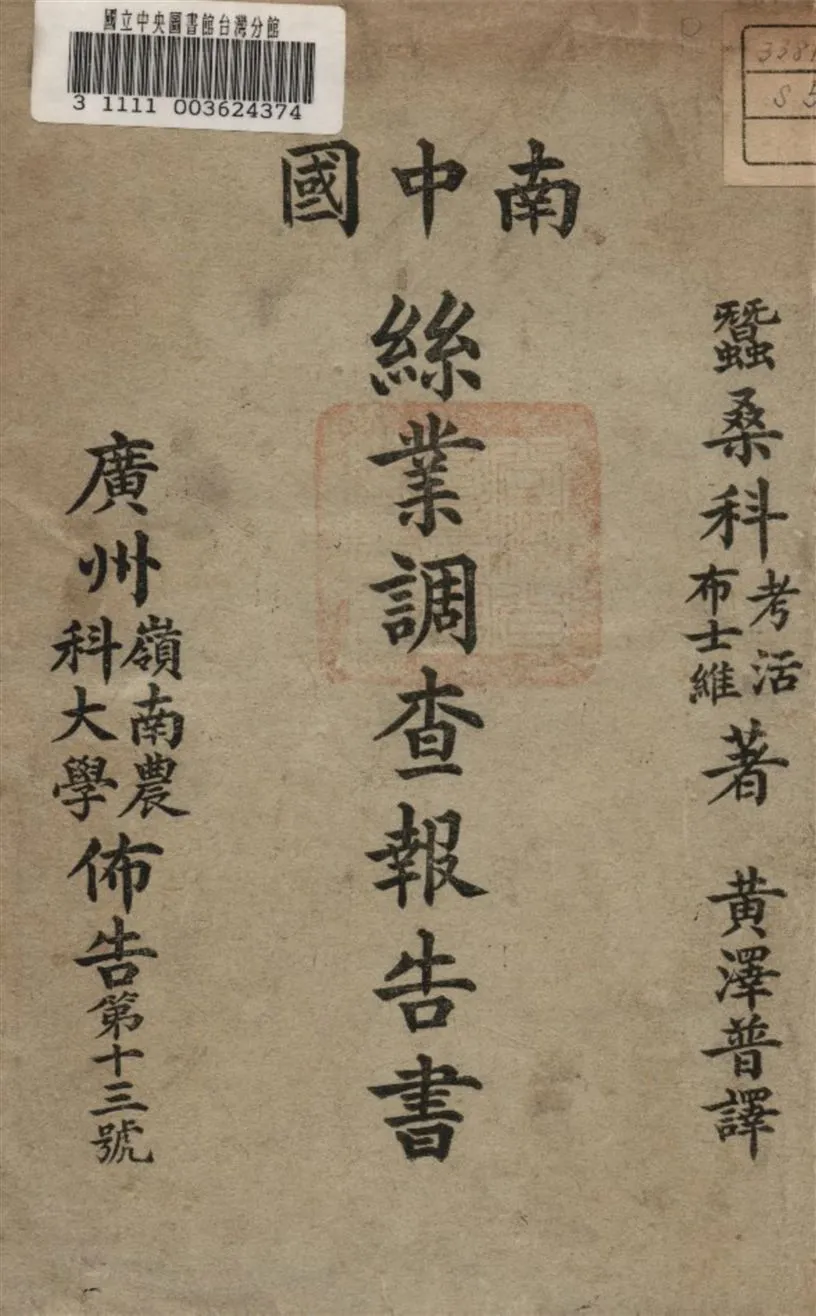 國立中央圖書館台灣分館
3 1111 003624374
南中國
蠶桑科考活布士維著 黃澤普譯
絲業調查報告書
廣州嶺南農科大學佈告第十三號